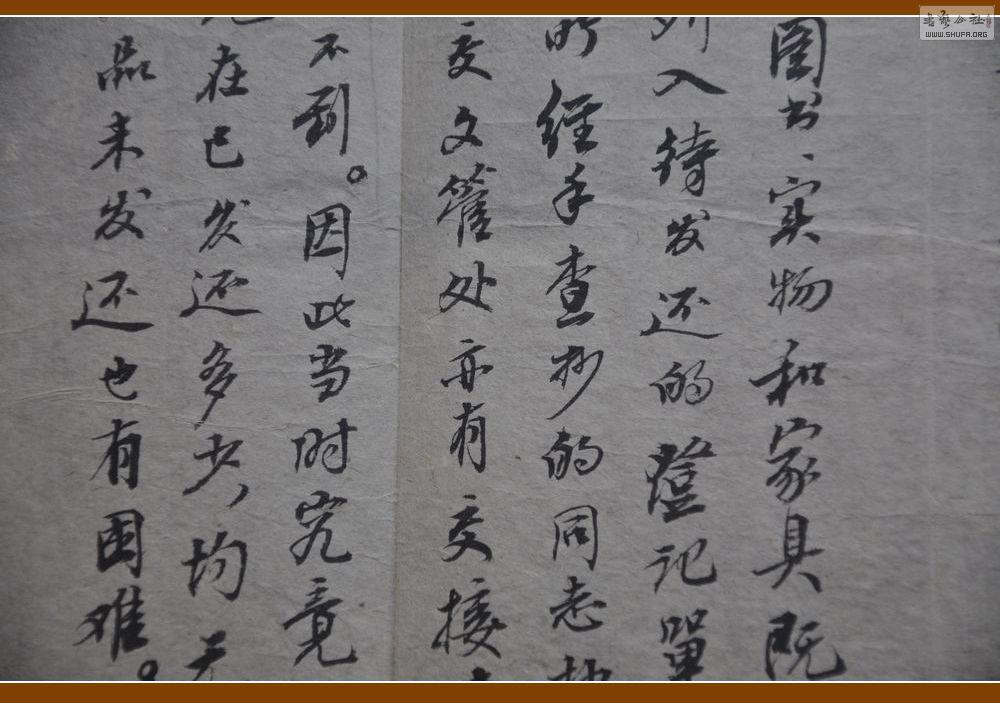 图书、实物和家具既
列入待发还的登记單
所经手查抄的同志
交文管处亦有交接
不到。因此当时究竟
在已发还多少，均无
品未发还也有困难。
書艺公社
WWW.SHUFA.ORG